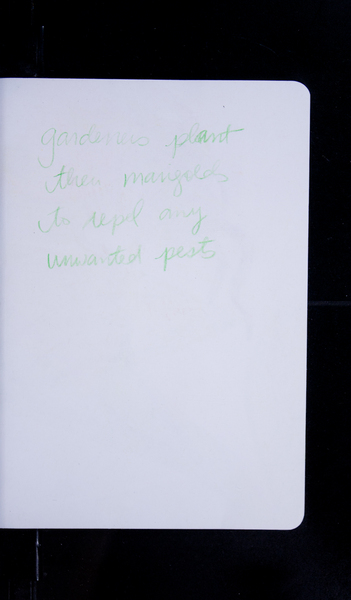 gardeners plant
their marigolds
to repel any
unwanted pests